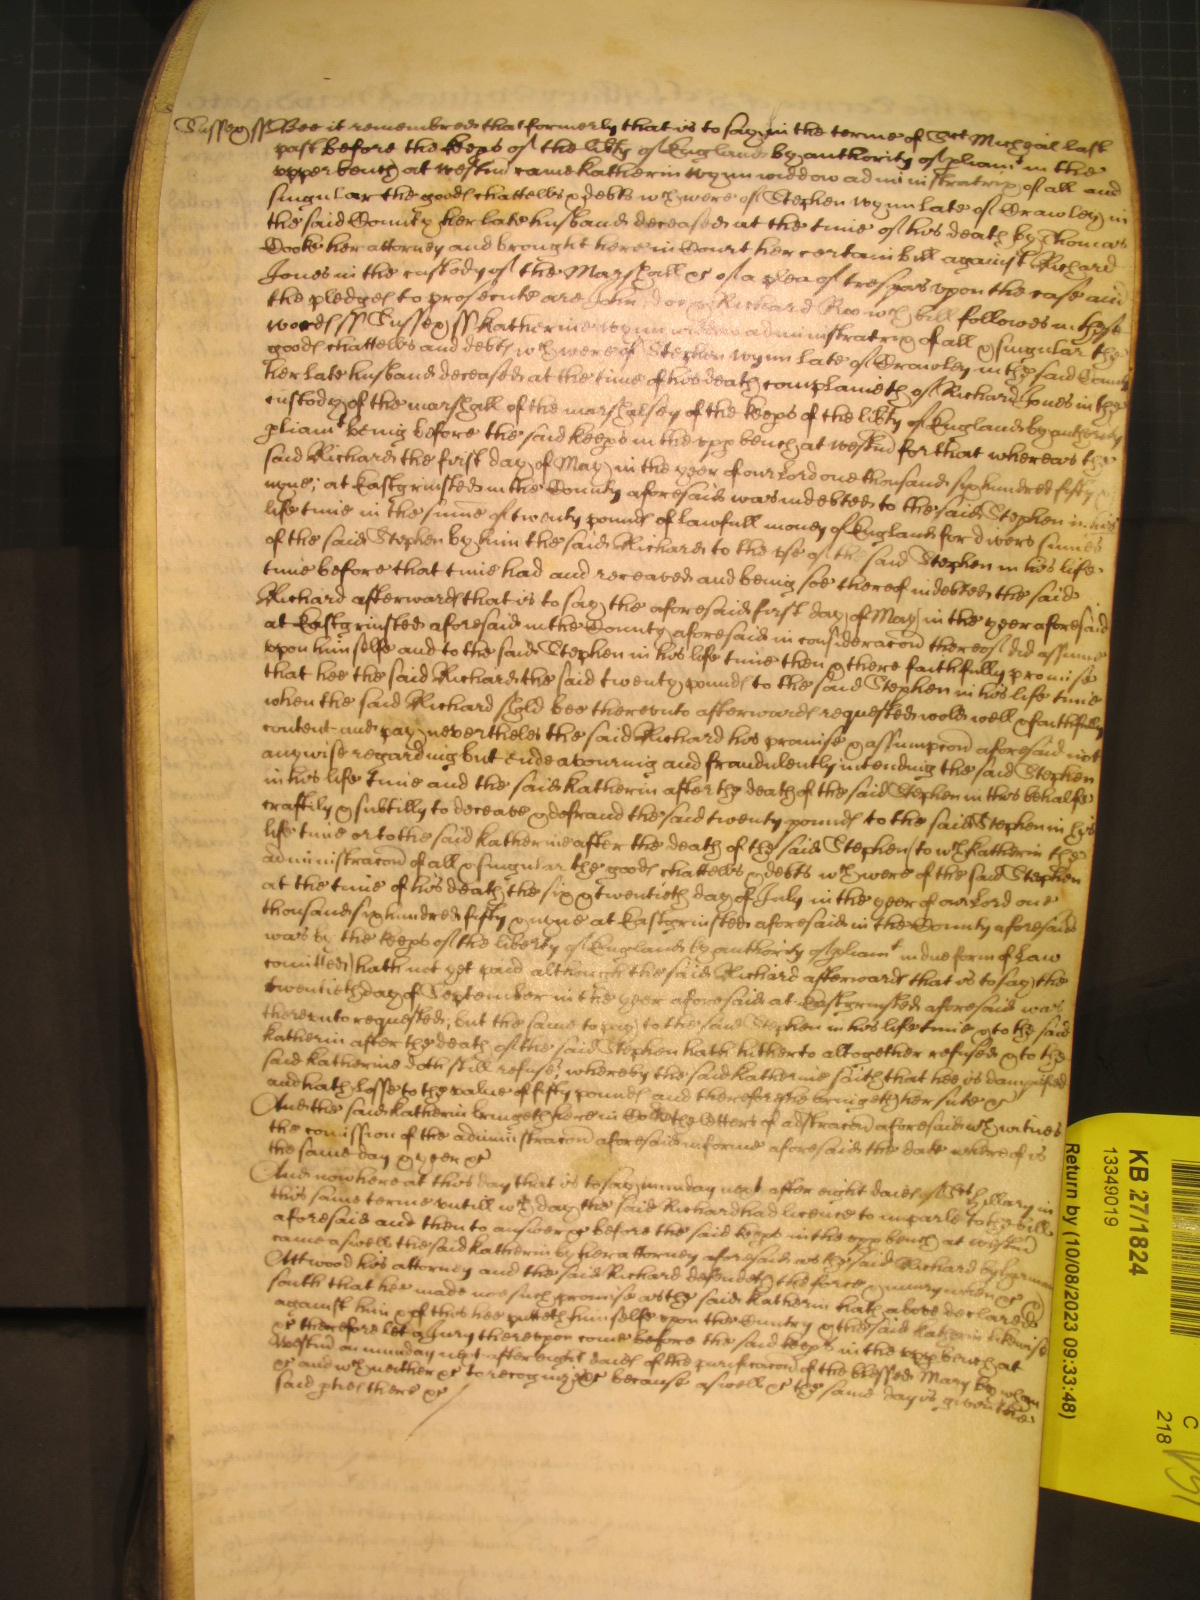 Sussex ss Bee it remembred that formerly that is to say in the terme of Sct Michael last
past before the keeps of the libty of England by authority of pliamt in the
upper bench at westmr came Katherin Wynn widdow administratrix of all and
singular the goods chattells & debts wch were of Stephen Wynn late of Crawley in
the said County her late husband deceased at the time of his death by Thomas
Cooke her attorney and brought here in Court her certain bill against Richard
Jones in the custody of the Marshall &c of a plea of trespas upon the case and
the pledges to prosecute are John doe & Richard Roo wch bill followes in these
words ss Sussex ss Katherine Wynn widdow administratrix of all & singular the
goods chattells and debts wch were of Stephen Wynn late of Crawley in the said County
her late husband deceased at the time of his death complaineth of Richard Jones in the
custody of the marshall of the marshalsey of the keeps of the libty of England by authority
pliamt being before the said keeps in the upp bench at westmr for that whereas the
said Richard the first day of May in the yeer of our Lord one thousand six hundred fifty &
nyne; at Eastgrinsted in the County aforesaid was indebted to the said Stephen in his
life time in the sume of twenty pounds of lawfull money of England for divers sumes
of the said Stephen by him the said Richard to the use of the said Stephen in his life
time before that time had and receaved and being soe thereof indebted the said
Richard afterwards that is to say the aforesaid first day of May in the yeer aforesaid
at Eastgrinsted aforesaid in the County aforesaid in consideracon thereof did assume
upon himselfe and to the said Stephen in his life time then & there faithfully promise
that hee the said Richard the said twenty pounds to the said Stephen in his life time
when the said Richard shold bee thereunto afterwards requested wold well & faithfully
content and pay nevertheles the said Richard his promise & assumpcon aforesaid not
anywise regarding but endeavouring and fraudulently intending the said Stephen
in his life time and the said Katherin after the death of the said Stephen in this behalfe
craftily & subtilly to deceave & defraud the said twenty pounds to the said Stephen in his
life time or to the said Katherine after the death of the said Stephen (to wch Katherin the
administracon of all & singular the goods chattells & debts wch were of the said Stephen
at the time of his death the six & twentieth day of July in the yeer of our Lord one
thousand six hundred fifty & nyne at Eastgrinsted aforesaid in the County aforesaid
was by the keeps of the liberty of England by authority of pliamt in due form of Law
comitted) hath not yet paid although the said Richard afterwards that is to say the
twentieth day of September in the yeer aforesaid at Eastgrinsted aforesaid was
thereunto requested; but the same to pay to the said Stephen in his life time & to the said
Katherin after the death of the said Stephen hath hitherto altogether refused & to the
said Katherine doth still refuse; whereby the said Katherine saith that hee is dampnified
and hath losse to the value of fifty pounds and therefore she bringeth her sute &c
And the said Katherin bringeth here in Court the letters of adstracon aforesaid wch witnes
the comission of the administracon aforesaid in forme aforesaid the date whereof is
the same day & yeer &c
And now here at this day that is to say munday next after eight daies of Sct hillary in
this same terme untill wch day the said Richard had licence to imparle to the bill
aforesaid and then to answer &c before the said keeps in the upp bench at westmr
came aswell the said Katherin by her attorney aforesaid as the said Richard by
Attwood his attorney and the said Richard defendeth the force & iniury when &c &
saith that hee made noe such promise as the said Katherin hath above declared
against him & of this hee putteth himselfe upon the Cuntry & the said Katherin likewise
&c therefore let a Jury thereupon come before the said keeps in the upp bench at
Westmr on munday next after eight daies of the purificacon of the blessed Mary by whom
&c and wch neither &c to recognize &c because aswell &c the same day is given the
said pties there &c
KB 27/1824
13349019
Return by (10/08/2023 09:33:48)
C
218